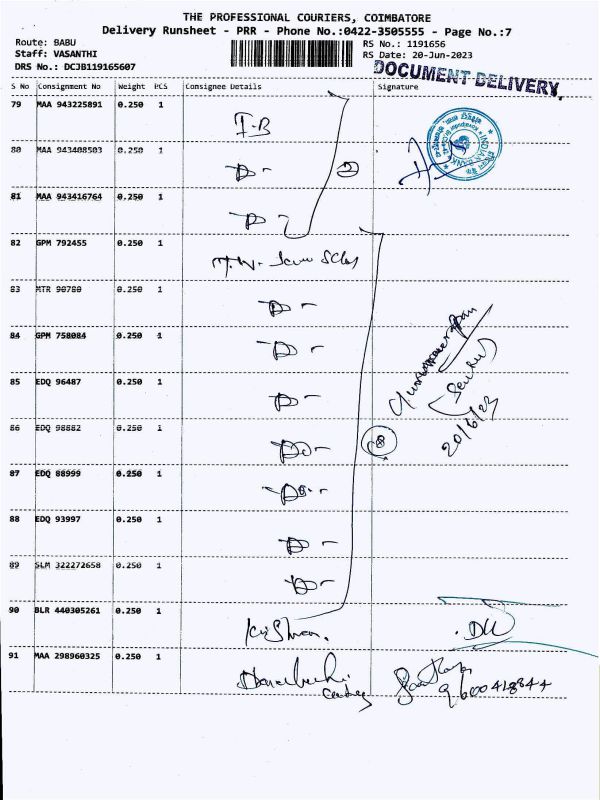 THE PROFESSIONAL COURIERS, COIMBATORE
Delivery Runsheet - PRR - Phone No.:0422-3505555 - Page No.:7
Route: BABU
Staff: VASANTHI
DRS No.: DCJB119165607
RS No.: 1191656
RS Date: 20-Jun-2023
DOCUMENT DELIVERY.
S No Consignment No Weight PCS Consignee Details Signature
79 MAA 943225891 0.250 1 I.B
80 MAA 943408503 0.250 1
81 MAA 943416764 0.250 1
82 GPM 792455 0.250 1
83 MTR 90780 0.250 1
84 GPM 758084 0.250 1
85 EDQ 96487 0.250 1
20/6/23
86 EDQ 98882 0.250 1
87 EDQ 88999 0.250 1
88 EDQ 93997 0.250 1
89 SLM 322272658 0.250 1
90 BLR 440305261 0.250 1
91 MAA 298960325 0.250 1
9600418844